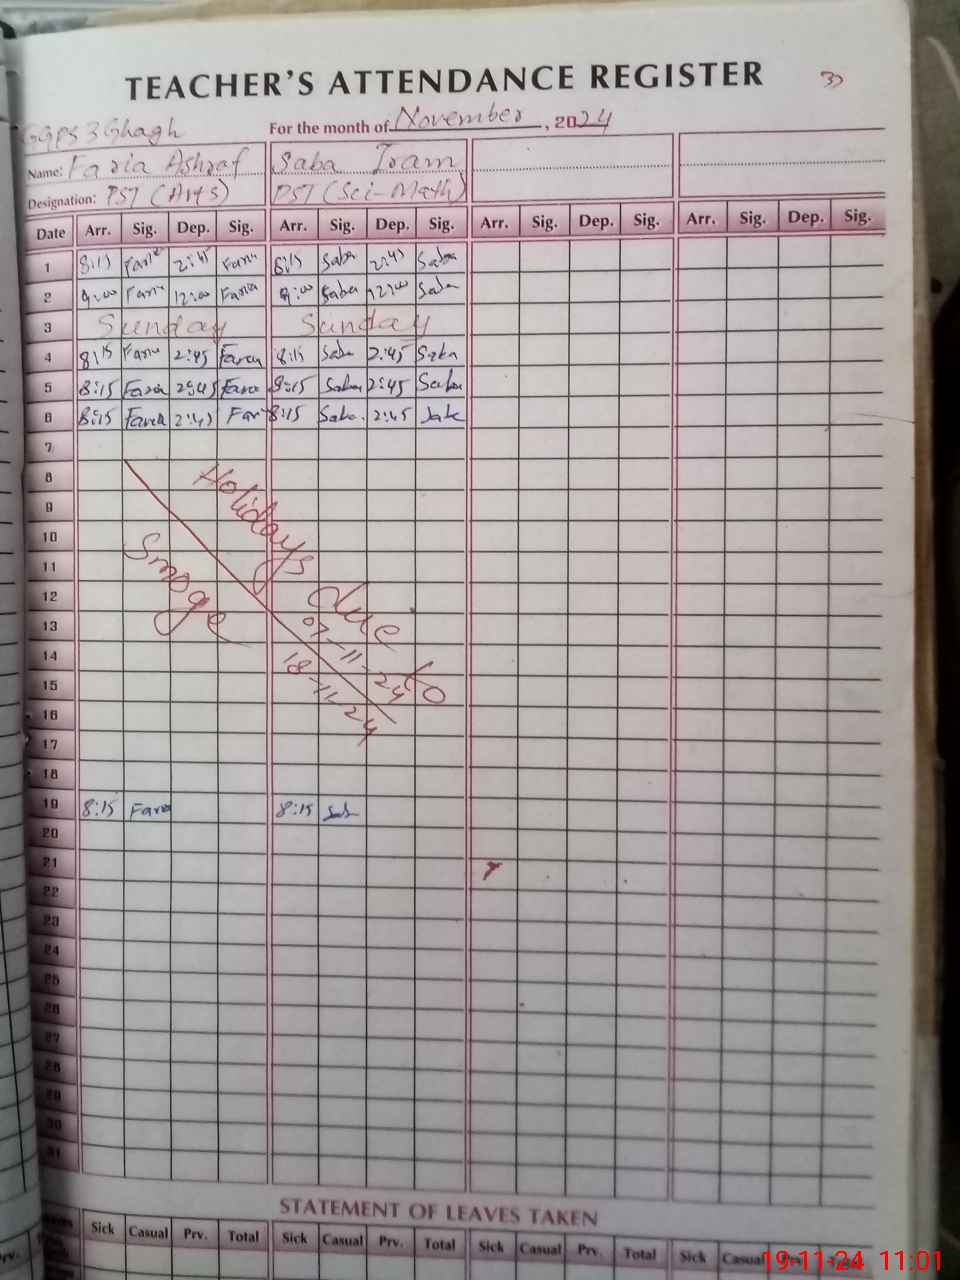 TEACHER'S ATTENDANCE REGISTER 3)
GGPS 3 Ghagh For the month of November, 2024
Name: Faria Ashraf Saba Iram
Designation: PST (Arts) PST (Sci-Math)
Date Arr. Sig. Dep. Sig. Arr. Sig. Dep. Sig. Arr. Sig. Dep. Sig. Arr. Sig. Dep. Sig.
1 8:15 Faria 2:45 Faria 8:15 Saba 2:45 Saba
2 9:00 Faria 12:00 Faria 9:00 Saba 12:00 Saba
3 Sunday Sunday
4 8:15 Faria 2:45 Faria 8:15 Saba 2:45 Saba
5 8:15 Faria 2:45 Faria 8:15 Saba 2:45 Saba
6 8:15 Faria 2:45 Far 8:15 Saba 2:45 Saba
7
8
9
10
11
12
13
14
15
16
17
18
Holidays due to
Smoge
07-11-24
18-11-24
19 8:15 Faria 8:15 Sab
20
21
22
23
24
25
26
27
28
29
30
31
STATEMENT OF LEAVES TAKEN
Sick Casual Prv. Total Sick Casual Prv. Total Sick Casual Prv. Total Sick Casual
19-11-24 11:01